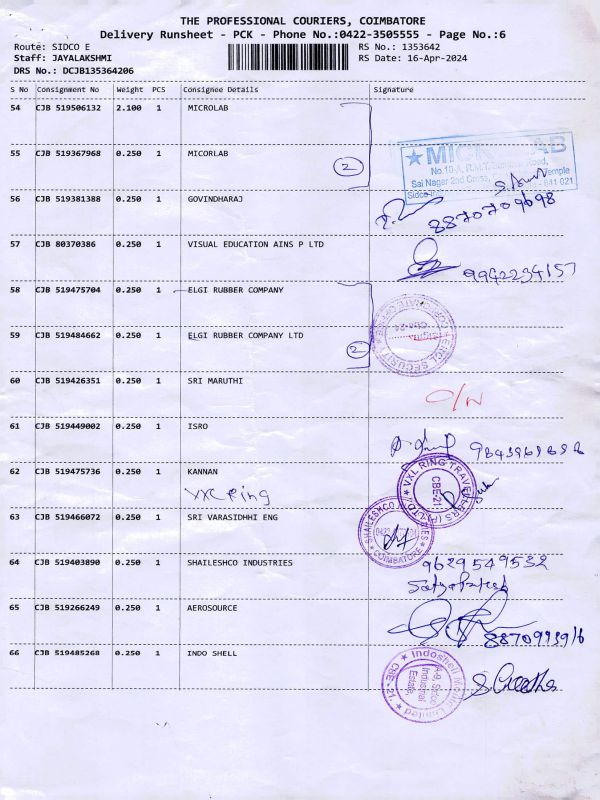 THE PROFESSIONAL COURIERS, COIMBATORE
Delivery Runsheet - PCK - Phone No.:0422-3505555 - Page No.:6
Route: SIDCO E RS No.: 1353642
Staff: JAYALAKSHMI RS Date: 16-Apr-2024
DRS No.: DCJB135364206
S No Consignment No Weight PCS Consignee Details Signature
54 CJB 519506132 2.100 1 MICROLAB
55 CJB 519367968 0.250 1 MICORLAB
2
No.10-A, R.M.T. Road,
Sai Nagar 2nd Cross, Temple
641 021
56 CJB 519381388 0.250 1 GOVINDHARAJ
8870709698
57 CJB 80370386 0.250 1 VISUAL EDUCATION AINS P LTD
9942234157
58 CJB 519475704 0.250 1 ELGI RUBBER COMPANY
59 CJB 519484662 0.250 1 ELGI RUBBER COMPANY LTD
2
SECURITY
60 CJB 519426351 0.250 1 SRI MARUTHI
O/N
61 CJB 519449002 0.250 1 ISRO
62 CJB 519475736 0.250 1 KANNAN
VXL Ring
VXL RING TRAVELLERS (P) LTD
CBE-21
63 CJB 519466072 0.250 1 SRI VARASIDHHI ENG
SHAILESHCO
COIMBATORE
64 CJB 519403890 0.250 1 SHAILESHCO INDUSTRIES
9629549532
65 CJB 519266249 0.250 1 AEROSOURCE
66 CJB 519485268 0.250 1 INDO SHELL
Indoshell Limited
A-9, Sidco
Industrial
Estate,
CBE - 21